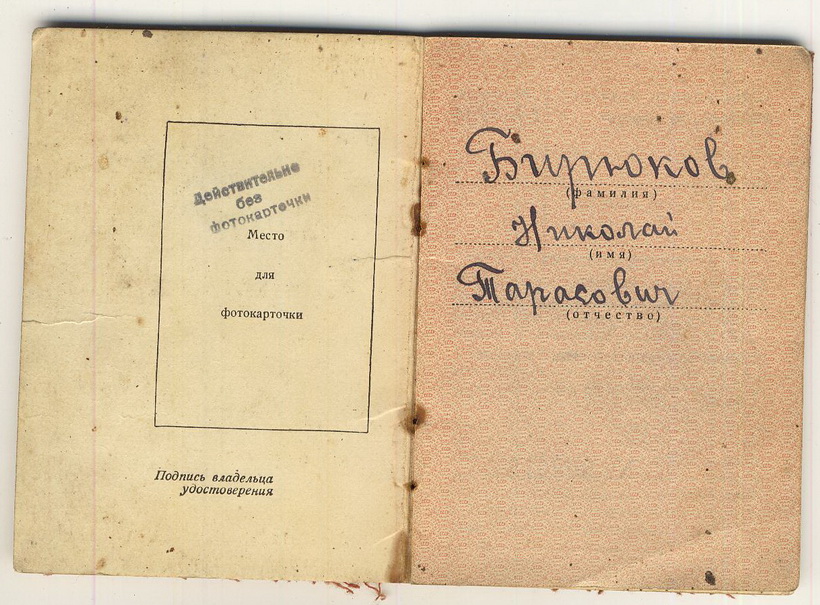 Действительно
без
фотокарточки
Место
для
фотокарточки
Подпись владельца
удостоверения
Бирюков
(фамилия)
Николай
(имя)
Тарасович
(отчество)